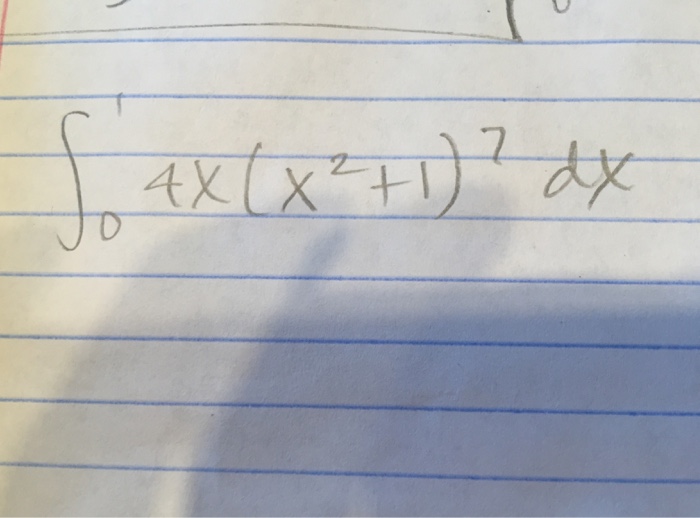 ∫₀¹ 4x(x²+1)⁷ dx